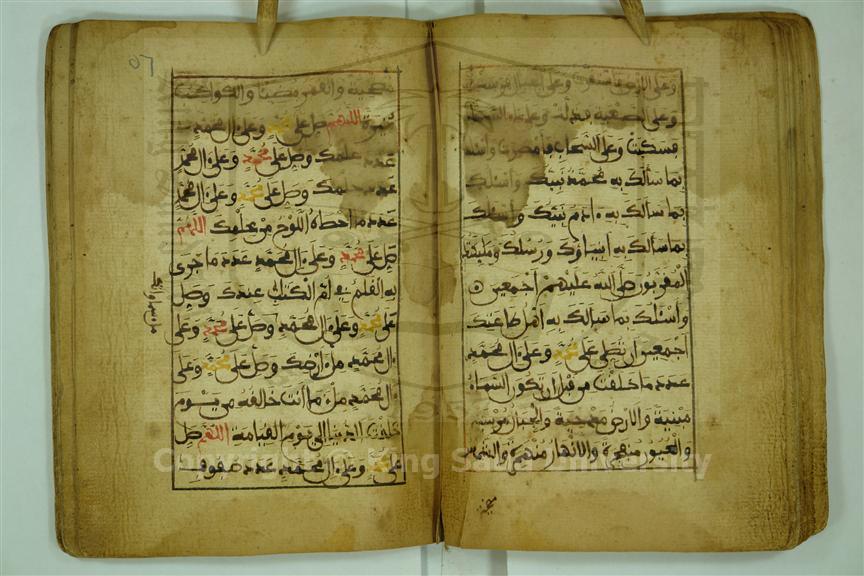 وعلى الارض فاستقرت وعلى الجبال فرست
وعلى الصعبة فذلت وعلى ماء السماء
فسكبت وعلى السحاب فأمطرت وأسئلك
بما سألك به محمد نبيك وأسئلك
بما سألك به ءادم نبيك وأسئلك
بما سألك به أنبياؤك ورسلك وملئكتك
المقربون صلى الله عليهم أجمعين
وأسئلك بما سألك به أهل طاعتك
أجمعين أن تصلي على محمد وعلى ءال محمد
عدد ما خلقت من قبل أن تكون السماء
مبنية والأرض مدحية والجبال مرسية
والعيون منفجرة والأنهار منهمرة والشمس
مضحية والقمر مضيئا والكواكب
منيرة اللهم صل على محمد وعلى ءال محمد
عدد علمك وصل على محمد وعلى ءال محمد
عدد حلمك وصل على محمد وعلى ءال محمد
عدد ما أحصاه اللوح من علمك اللهم
صل على محمد وعلى ءال محمد عدد ما جرى
به القلم في أم الكتاب عندك وصل
على محمد وعلى ءال محمد وصل على محمد وعلى
ءال محمد ملء أرضك وصل على محمد وعلى
ءال محمد ملء ما أنت خالقه من يوم
خلقت الدنيا إلى يوم القيامة اللهم صل
على وعلى ءال محمد عدد صفوف
Copyright © King Saud University